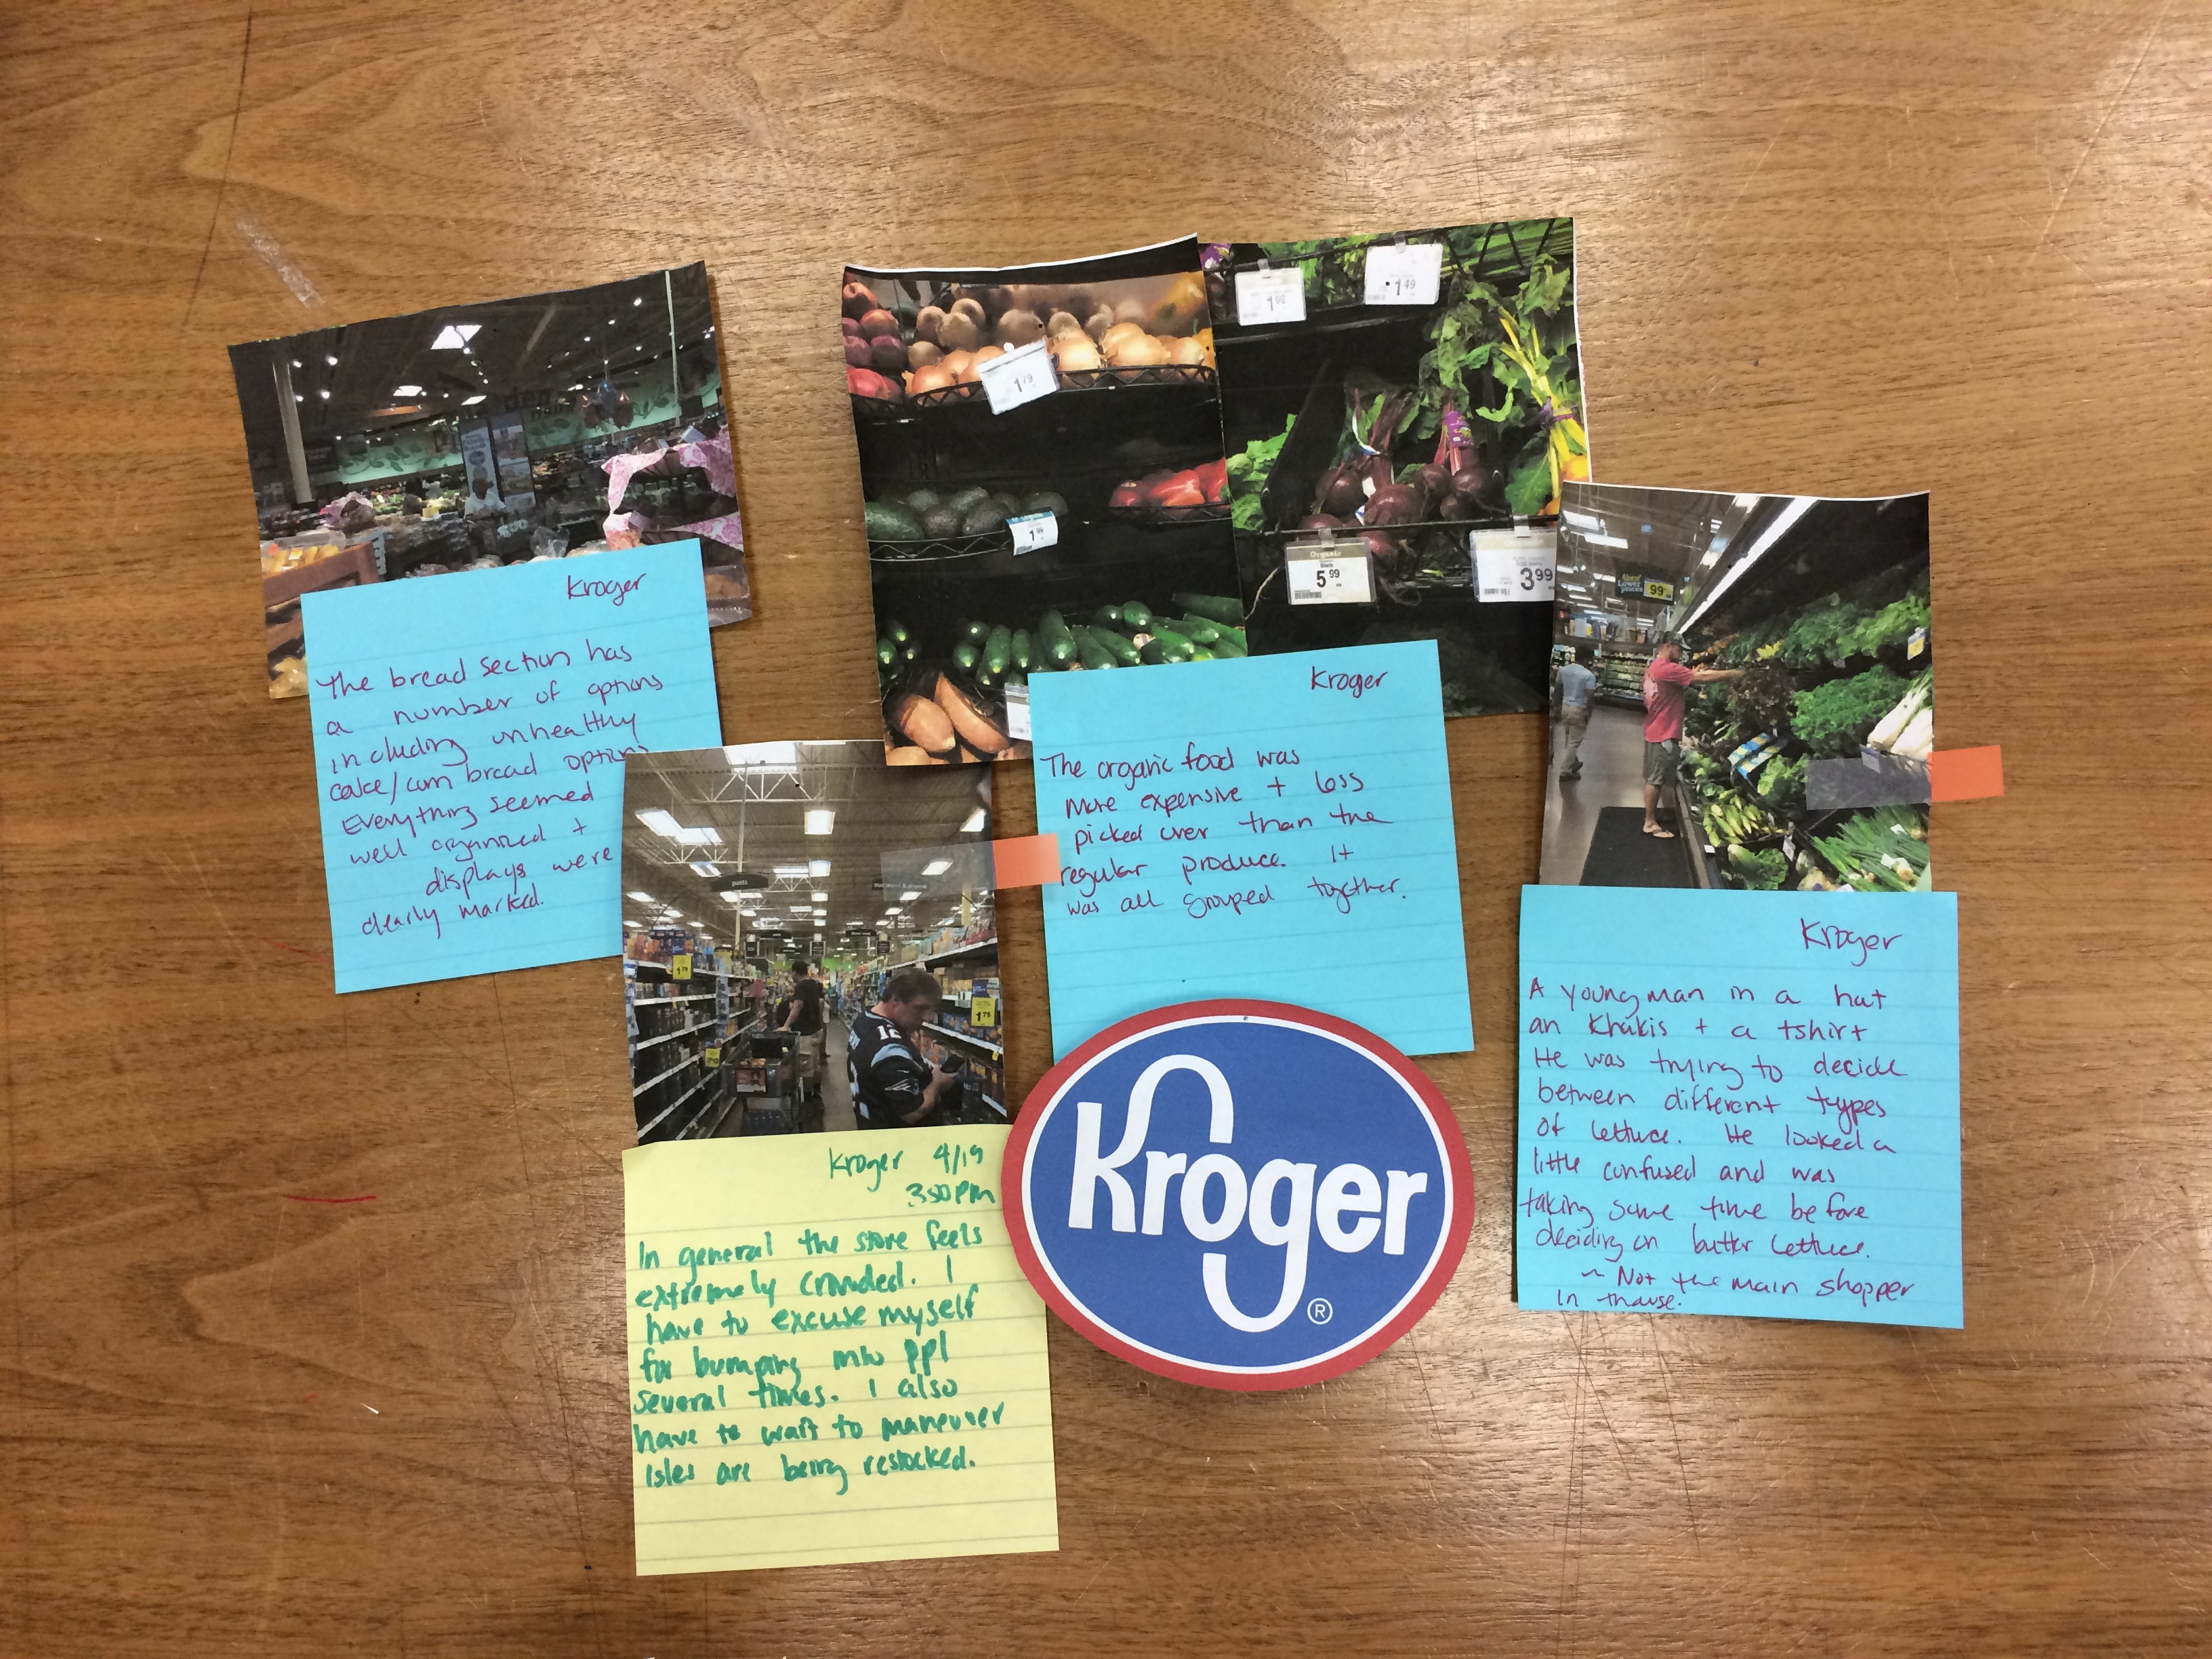 Kroger
The bread section has
a number of options
including unhealthy
cake/corn bread options
Everything seemed
well organized +
displays were
clearly marked.
1 79
1 99
1 99
1 49
Organic
Beets
5 99
3 99
Kroger
The organic food was
more expensive + less
picked over than the
regular produce. It
was all grouped together.
99
Kroger
A young man in a hat
an Khakis + a tshirt
He was trying to decide
between different types
of lettuce. He looked a
little confused and was
taking some time before
deciding on butter lettuce.
~ Not the main shopper
in thouse.
pasta
1 79
1 79
12
Kroger 4/19
3:00 pm
In general the store feels
extremely crowded. I
have to excuse myself
for bumping into ppl
several times. I also
have to wait to maneuver
isles are being restocked.
Kroger
®